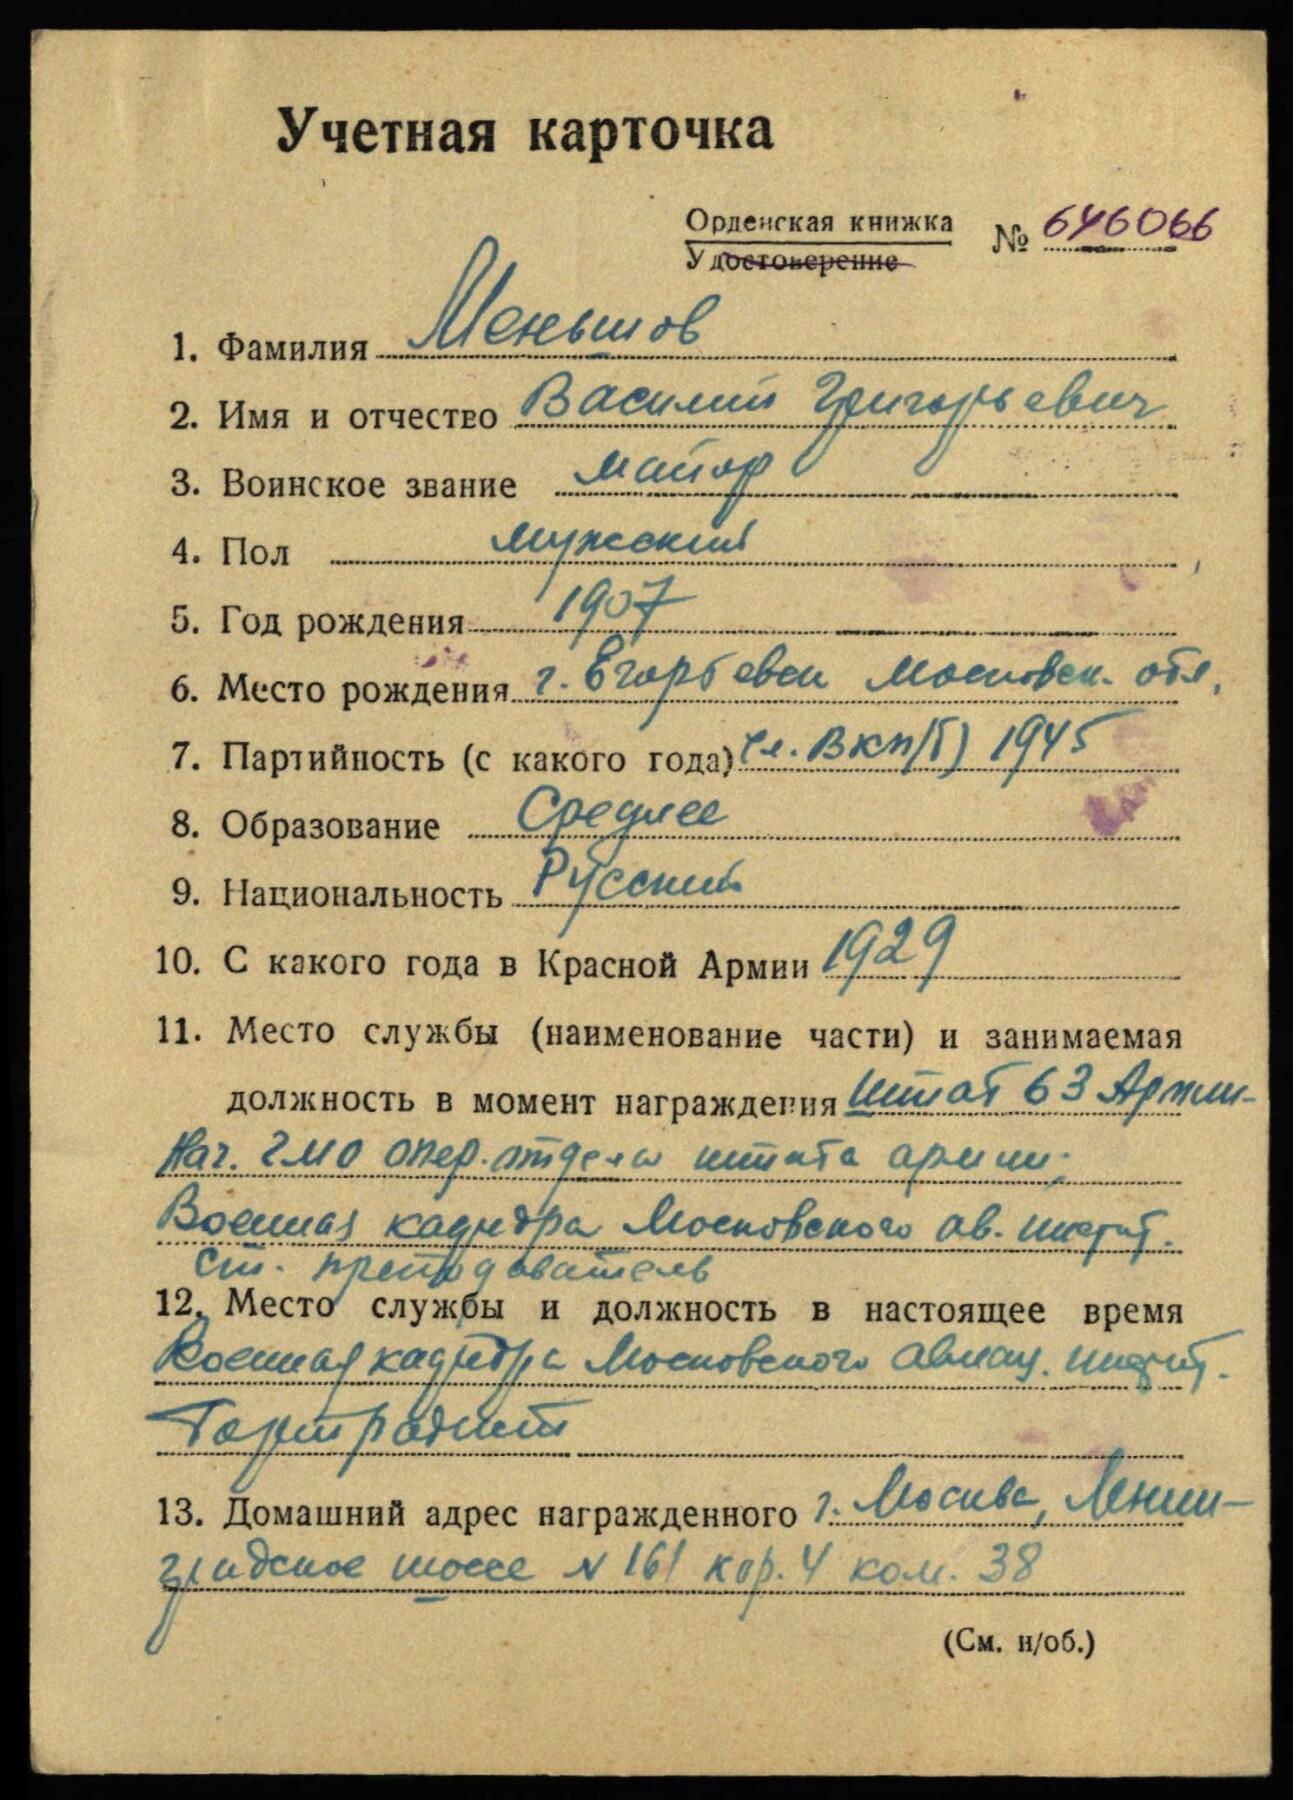 Учетная карточка
Орденская книжка
Удостоверение
№ 646066
1. Фамилия Меньшов
2. Имя и отчество Василий Григорьевич
3. Воинское звание майор
4. Пол мужской
5. Год рождения 1907
6. Место рождения г. Егорьевск Московск. обл.
7. Партийность (с какого года) Чл. ВКП(б) 1945
8. Образование Среднее
9. Национальность Русский
10. С какого года в Красной Армии 1929
11. Место службы (наименование части) и занимаемая
должность в момент награждения Штаб 63 Армии-
Нач. ГМО опер. отдела штаба армии;
Военная кафедра Московского ав. инстит.
ст. преподаватель
12. Место службы и должность в настоящее время
Военная кафедра Московского авиац. инстит.
13. Домашний адрес награжденного г. Москва, Ленин-
градское шоссе N 161 кор. 4 ком. 38
(См. н/об.)